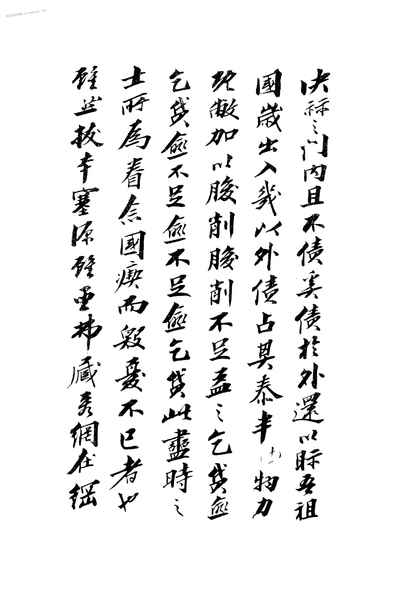 之门内且不债奚债於外還以眎吾祖
國歲出入幾以外債占其泰半物力
既敝加以朘削朘削不足益之乞貸愈
乞貸愈不足愈不足愈乞貸此盡時之
士所為眷念國瘼而殷憂不已者也
雖然拔本塞源雖網在綱